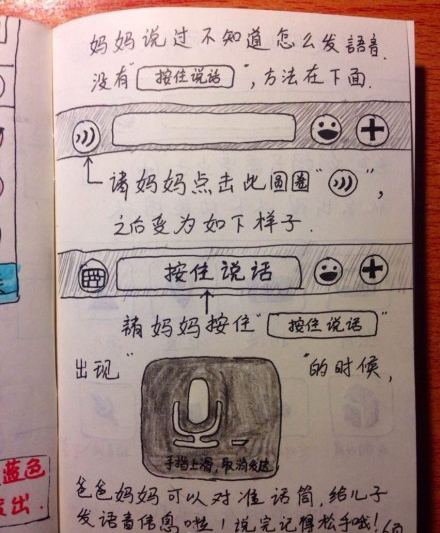 妈妈说过不知道怎么发語音.
没有"按住说话",方法在下面.
请妈妈点击此圆圈" ",
之后变为如下样子.
按住说话
請妈妈按住"按住说话"
出现" "的时候,
手指上滑,取消发送
爸爸妈妈可以对准话筒,给儿子
发语音信息啦!说完记得松手哦!
蓝色
出.